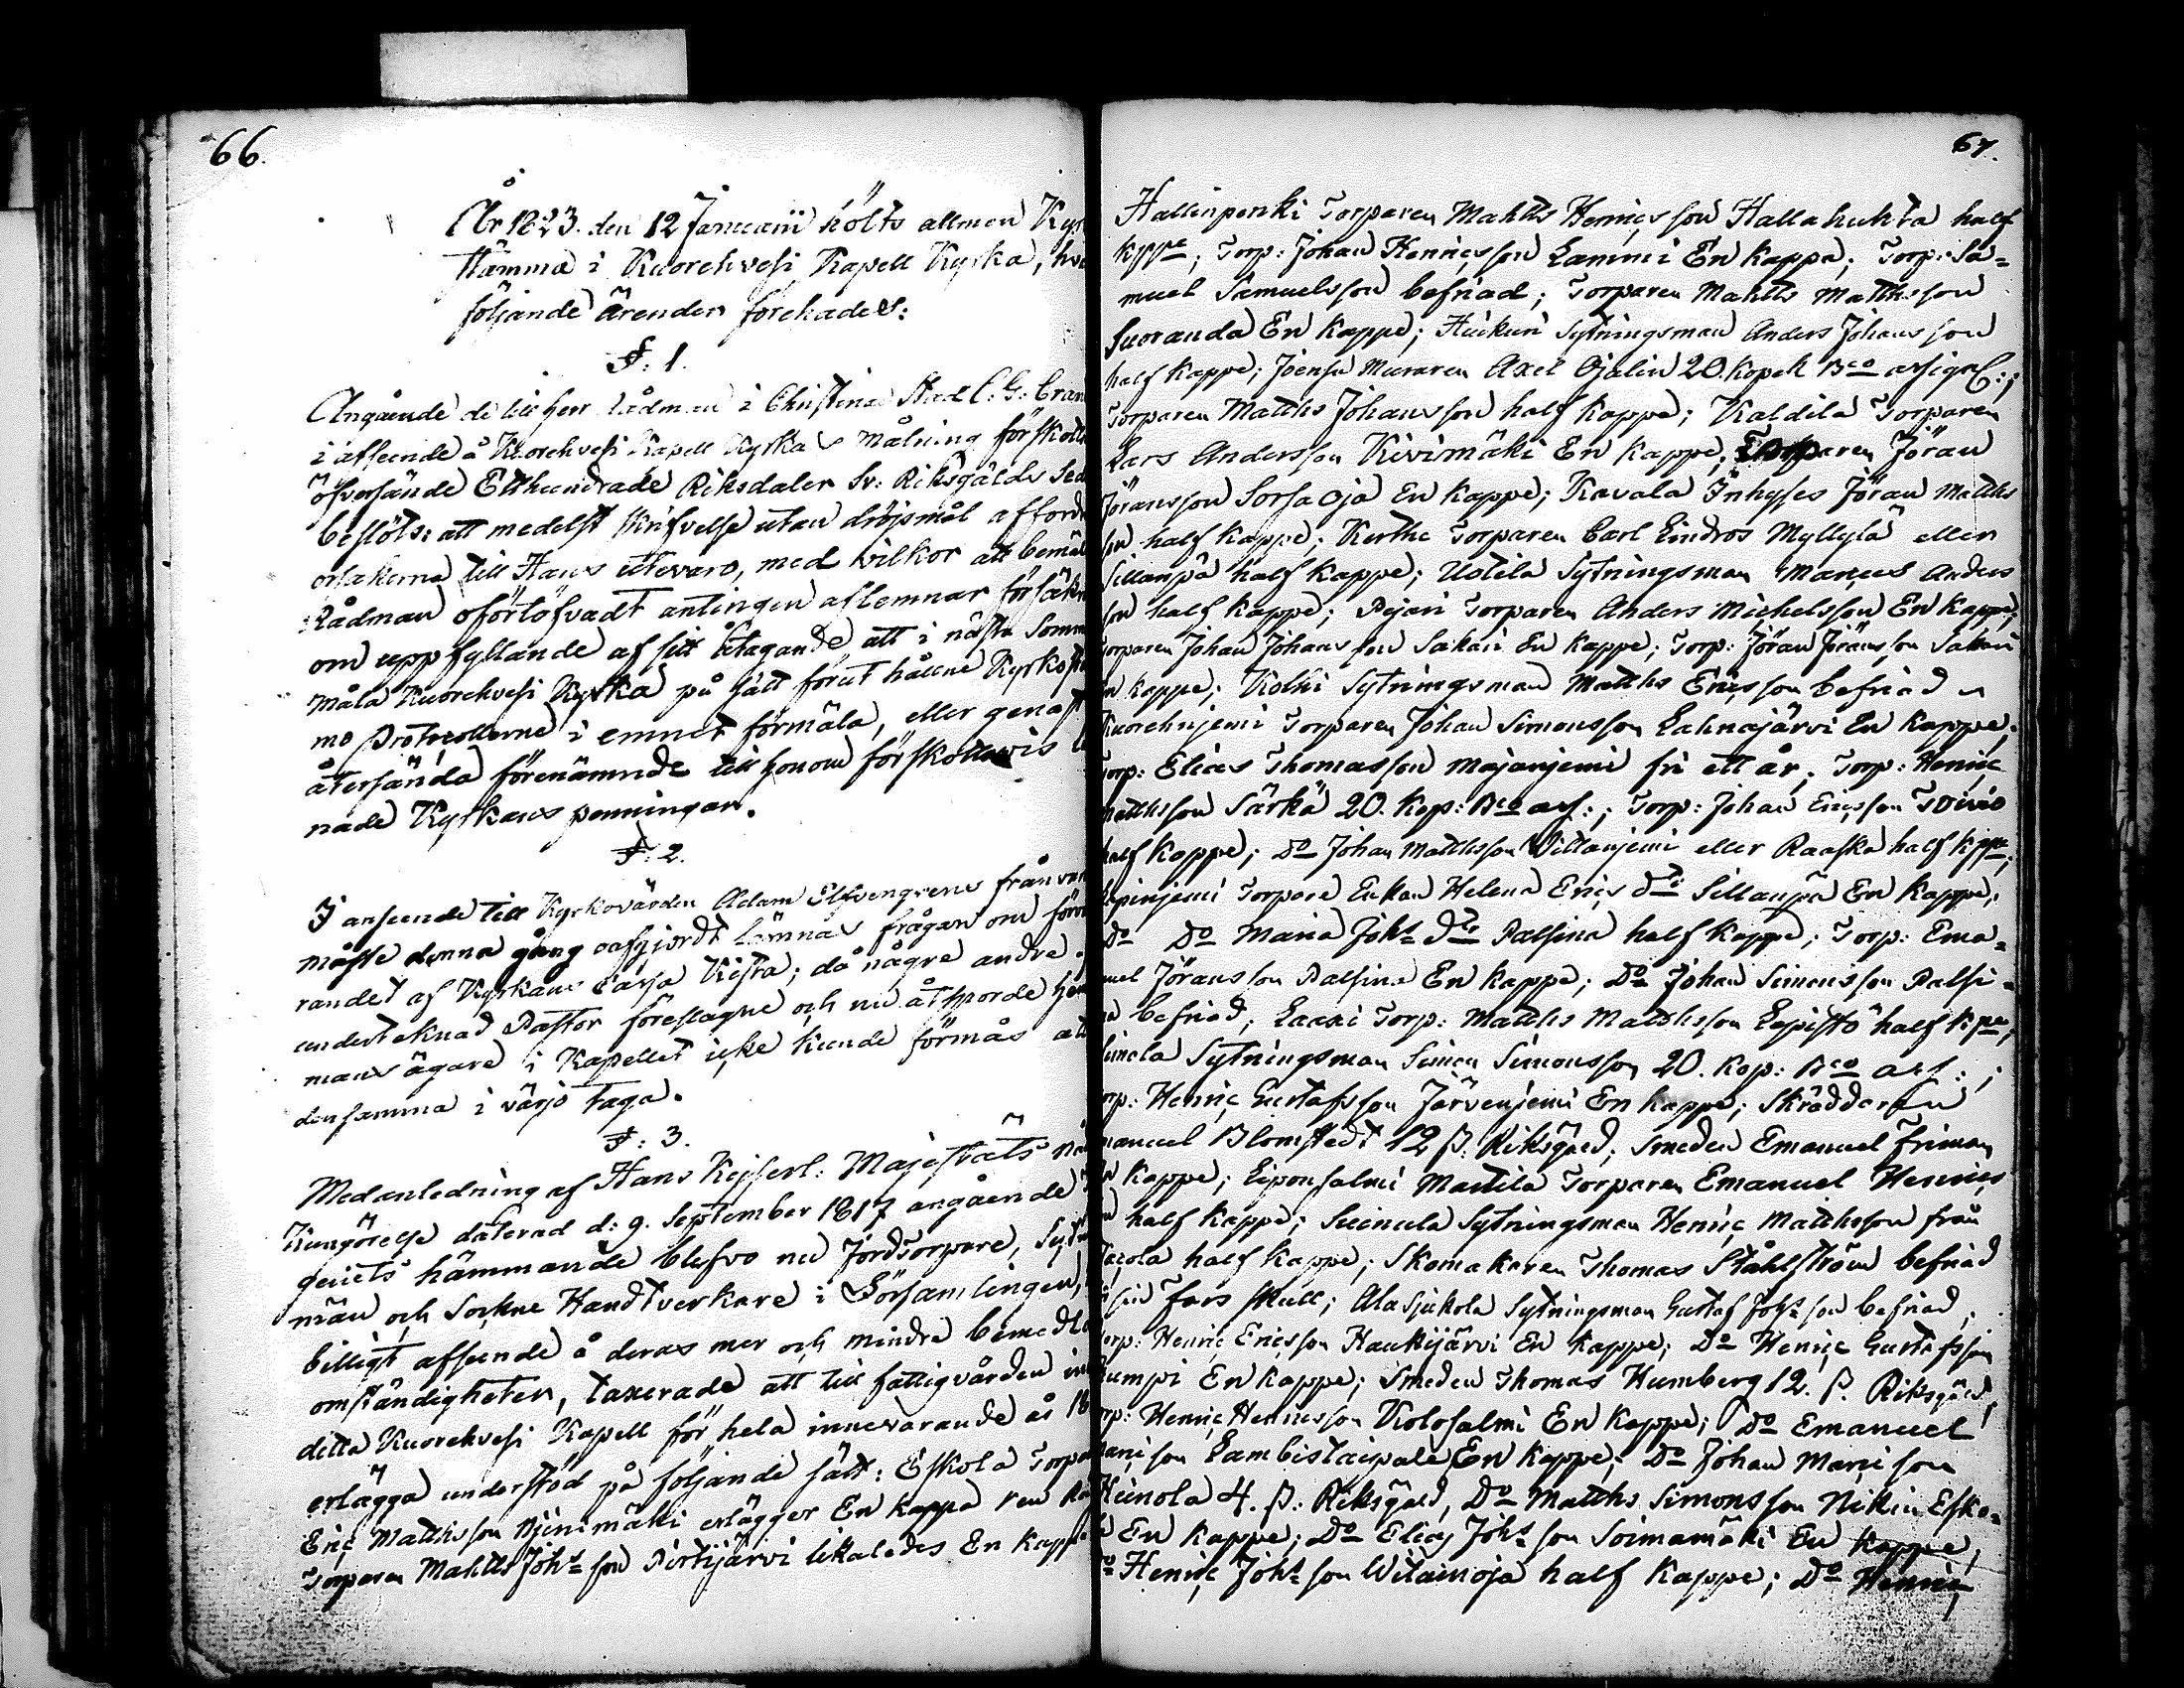 66.
År 1823. den 12 Januarii hölts allmen Kyr
stämma i Kuorehvesi Kapell Kyrka, hva
följande ärenden förehades:
§: 1.
Angående de till Herr Rådman i Christina Stad C: G: Bran
i afseende å Kuorehvesi Kapell Kyrkas målning förskotts
öfversände Etthundrade Riksdaler Sv: Riksgälds Sed
beslöts: att medelst skrifvelse utan dröjsmål affordra
orsakerna till Hans utevaro, med vilkor att bemäl
Rådman oförtöfvadt antingen aflemnar försäkr
om uppfyllande af sitt åtagande, att i nästa Somm
måla Kuorehvesi Kyrka på sätt förut hållne Kyrkost
mo Protocollerne i emnet förmäla, eller genast
återsända förenämnde till honom förskottsvis
nade Kyrkans penningar.
§: 2.
I anseende till Kyrkovärden Adam Elfvengrens frånvar
måste denna gång oafgjordt lämnas frågan om förva
randet af Kyrkans Cassa Kista; då några andre
underteknad Pastor föreslagne och nu åtsporde hem
mans ägare i Kapellet icke kunde förmås att
densamma i värjo taga.
§: 3.
Med anledning af Hans Kejserl: Majestäts nåd
Kungörelse daterad d: 9. September 1817 angående
geriets hämmande blefvo nu Jordtorpare, Syt
män och Sockne Handtverkare i Församlingen,
billigt afseende å deras mer och mindre bemedl
omständigheter, taxerade att till fattigvården in
detta Kuorehvesi Kapell för hela innevarande år 18
erlägga understöd på följande sätt: Eskola Torpar
Eric Matthsson Njenimäki erlägger En kappa ren
Torparen Matths Johs son Pirttijärvi likaledes En kappe
67.
Hallinpenki Torparen Matths Henricsson Hallahuhta half
kppe; Torp: Johan Henricsson Lammi En kappa; Torp: Sa=
muel Samuelsson befriad; Torparen Matths Matthsson
Suoranda En kappe; Huikuri Sytningsman Anders Johansson
half kappe; Joensu Muraren Axel Ojalin 20. kopek Bco assign:;
Torparen Matths Johansson half kappe; Kaldila Torparen
Lars Andersson Kivimäki En kappe; Torparen Jöran
Jöransson Sorsa oja En kappe; Kavala Inhyses Jöran Matths
son half kappe; Kerthe Torparen Carl Lindros Myllylä eller
Sillanpä half kappe; Uotila Sytningsman Marcus Anders
son half kappe; Pejari Torparen Anders Michelsson En kappe;
Torparen Johan Johansson Sakari En kappe; Torp: Jöran Jöransson Sakari
En kappe; Kolhi Sytningsman Matths Ericsson befriad
Kuorehnjemi Torparen Johan Simonsson Lahnajärvi En kappe;
Torp: Elias Thomasson Majanjemi fri ett år; Torp: Henric
Matthsson Särkä 20. kop: Bco ass:; Torp: Johan Ericsson Toivio
half kappe; Do Johan Matthsson Villanjemi eller Raaska half kppe;
pinjemi Torpare Enkan Helena Erics dtr Sillanpä En kappe;
Do Do Maria Johs dtr Palsina half kappe; Torp: Ema=
nuel Jöransson Palsina En kappe; Do Johan Simonsson Palsi=
na befriad; Laaxi Torp: Matths Matthsson Lepistö half kpe;
Sytningsman Simon Simonsson 20. kop: Bco ass:;
Torp: Henric Gustafsson Järvenjemi En kappe; Skräddaren
Emanuel Blomstedt 12 ß. Riksgäld; Smeden Emanuel Friman
En kappe; Leponsalmi Mattila Torparen Emanuel Henrics
son half kappe; Suinula Sytningsman Henric Matthsson från
half kappe; Skomakaren Thomas Ståhlström befriad
sin Fars skull; Ala Sjukola Sytningsman Gustaf Johs son befriad;
Torp: Henric Ericsson Haukijärvi En kappe; Do Henric Gustafsson
Rumpi En kappe; Smeden Thomas Humberg 12. ß. Riksgäld;
Torp: Henric Henricsson Kolosalmi En kappe; Do Emanuel
Maricson Lambistaipale En kappe; Do Johan Maricson
Heinola 4. ß. Riksgäld, Do Matths Simonsson Nikin Esko=
la En kappe; Do Elias Johs son Soimamäki En kappe;
Do Henric Johs son Witainoja half kappe; Do Henric